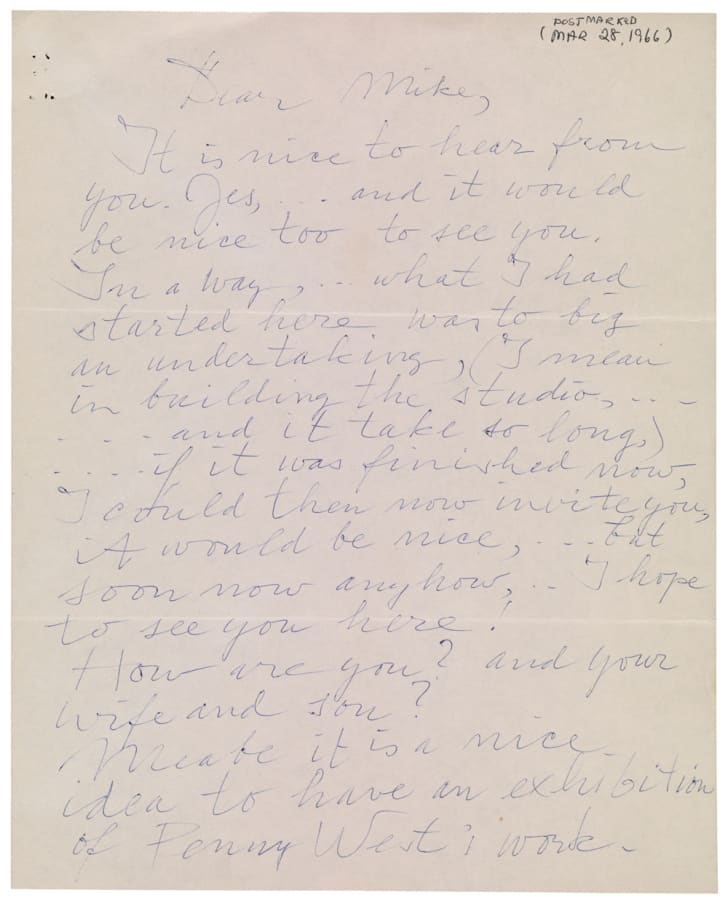 POSTMARKED
(MAR 28, 1966)
Dear Mike,
It is nice to hear from
you. Yes, ... and it would
be nice too to see you.
In a way, ... what I had
started here was to big
an undertaking, (I mean
in building the studio, ...-
.... and it take so long,)
.... if it was finished now,
I could then now invite you,
it would be nice, ... but
soon now anyhow, .. I hope
to see you here!
How are you? and your
wife and son?
Meabe it is a nice
idea to have an exhibition
of Penny West's work.